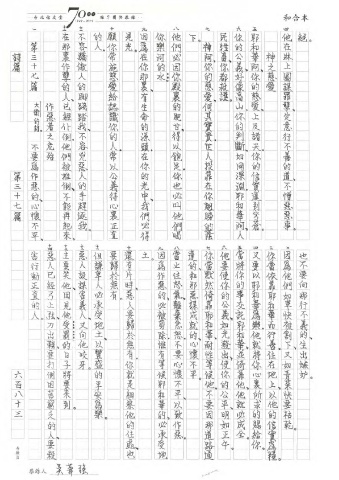 和合本
絕、
他在床上圖謀罪孽定意行不善的道不憎惡惡事、
神之慈愛
耶和華阿你的慈愛上及諸天你的信實達到穹蒼、
你的公義好像高山你的判斷如同深淵耶和華阿人
民牲畜你都救護、
神阿你的慈愛何其寶貴世人投靠在你翅膀的蔭
下、
他們必因你殿裏的肥甘得以飽足你也必叫他們喝
你樂河的水、
因為在你那裏有生命的源頭在你的光中我們必得
見光、
願你常施慈愛給認識你的人常以公義待心裏正直
的人、
不容驕傲人的腳踐踏我不容兇惡人的手趕逐我、
在那裏作孽的人已經仆倒他們被推倒不能再起來、
作惡者之危殆
大衛的詩
第三十七篇 不要為作惡的心懷不平
詩篇 第三十七篇
也不要向那行不義的生出嫉妒
因為他們如草快被割下又如青菜快要枯乾、
你當倚靠耶和華而行善住在地上以他的信實為糧
又要以耶和華為樂他就將你心裏所求的賜給你、
當將你的事交託耶和華並倚靠他他就必成全、
他要使你的公義如光發出使你的公平明如正午、
你當默然倚靠耶和華耐性等候他不要因那道路通
達的和那惡謀成就的心懷不平、
當止住怒氣離棄忿怒不要心懷不平以致作惡、
因為作惡的必被剪除惟有等候耶和華的必承受地
土、
還有片時惡人要歸於無有你就是細察他的住處也
要歸於無有、
但謙卑人必承受地土以豐盛的平安為樂
惡人設謀害義人又向他咬牙、
主要笑他因見他受罰的日子將要來到、
惡人已經弓上弦刀出鞘要打倒困苦窮乏的人要殺
害行動正直的人、
六百八十三